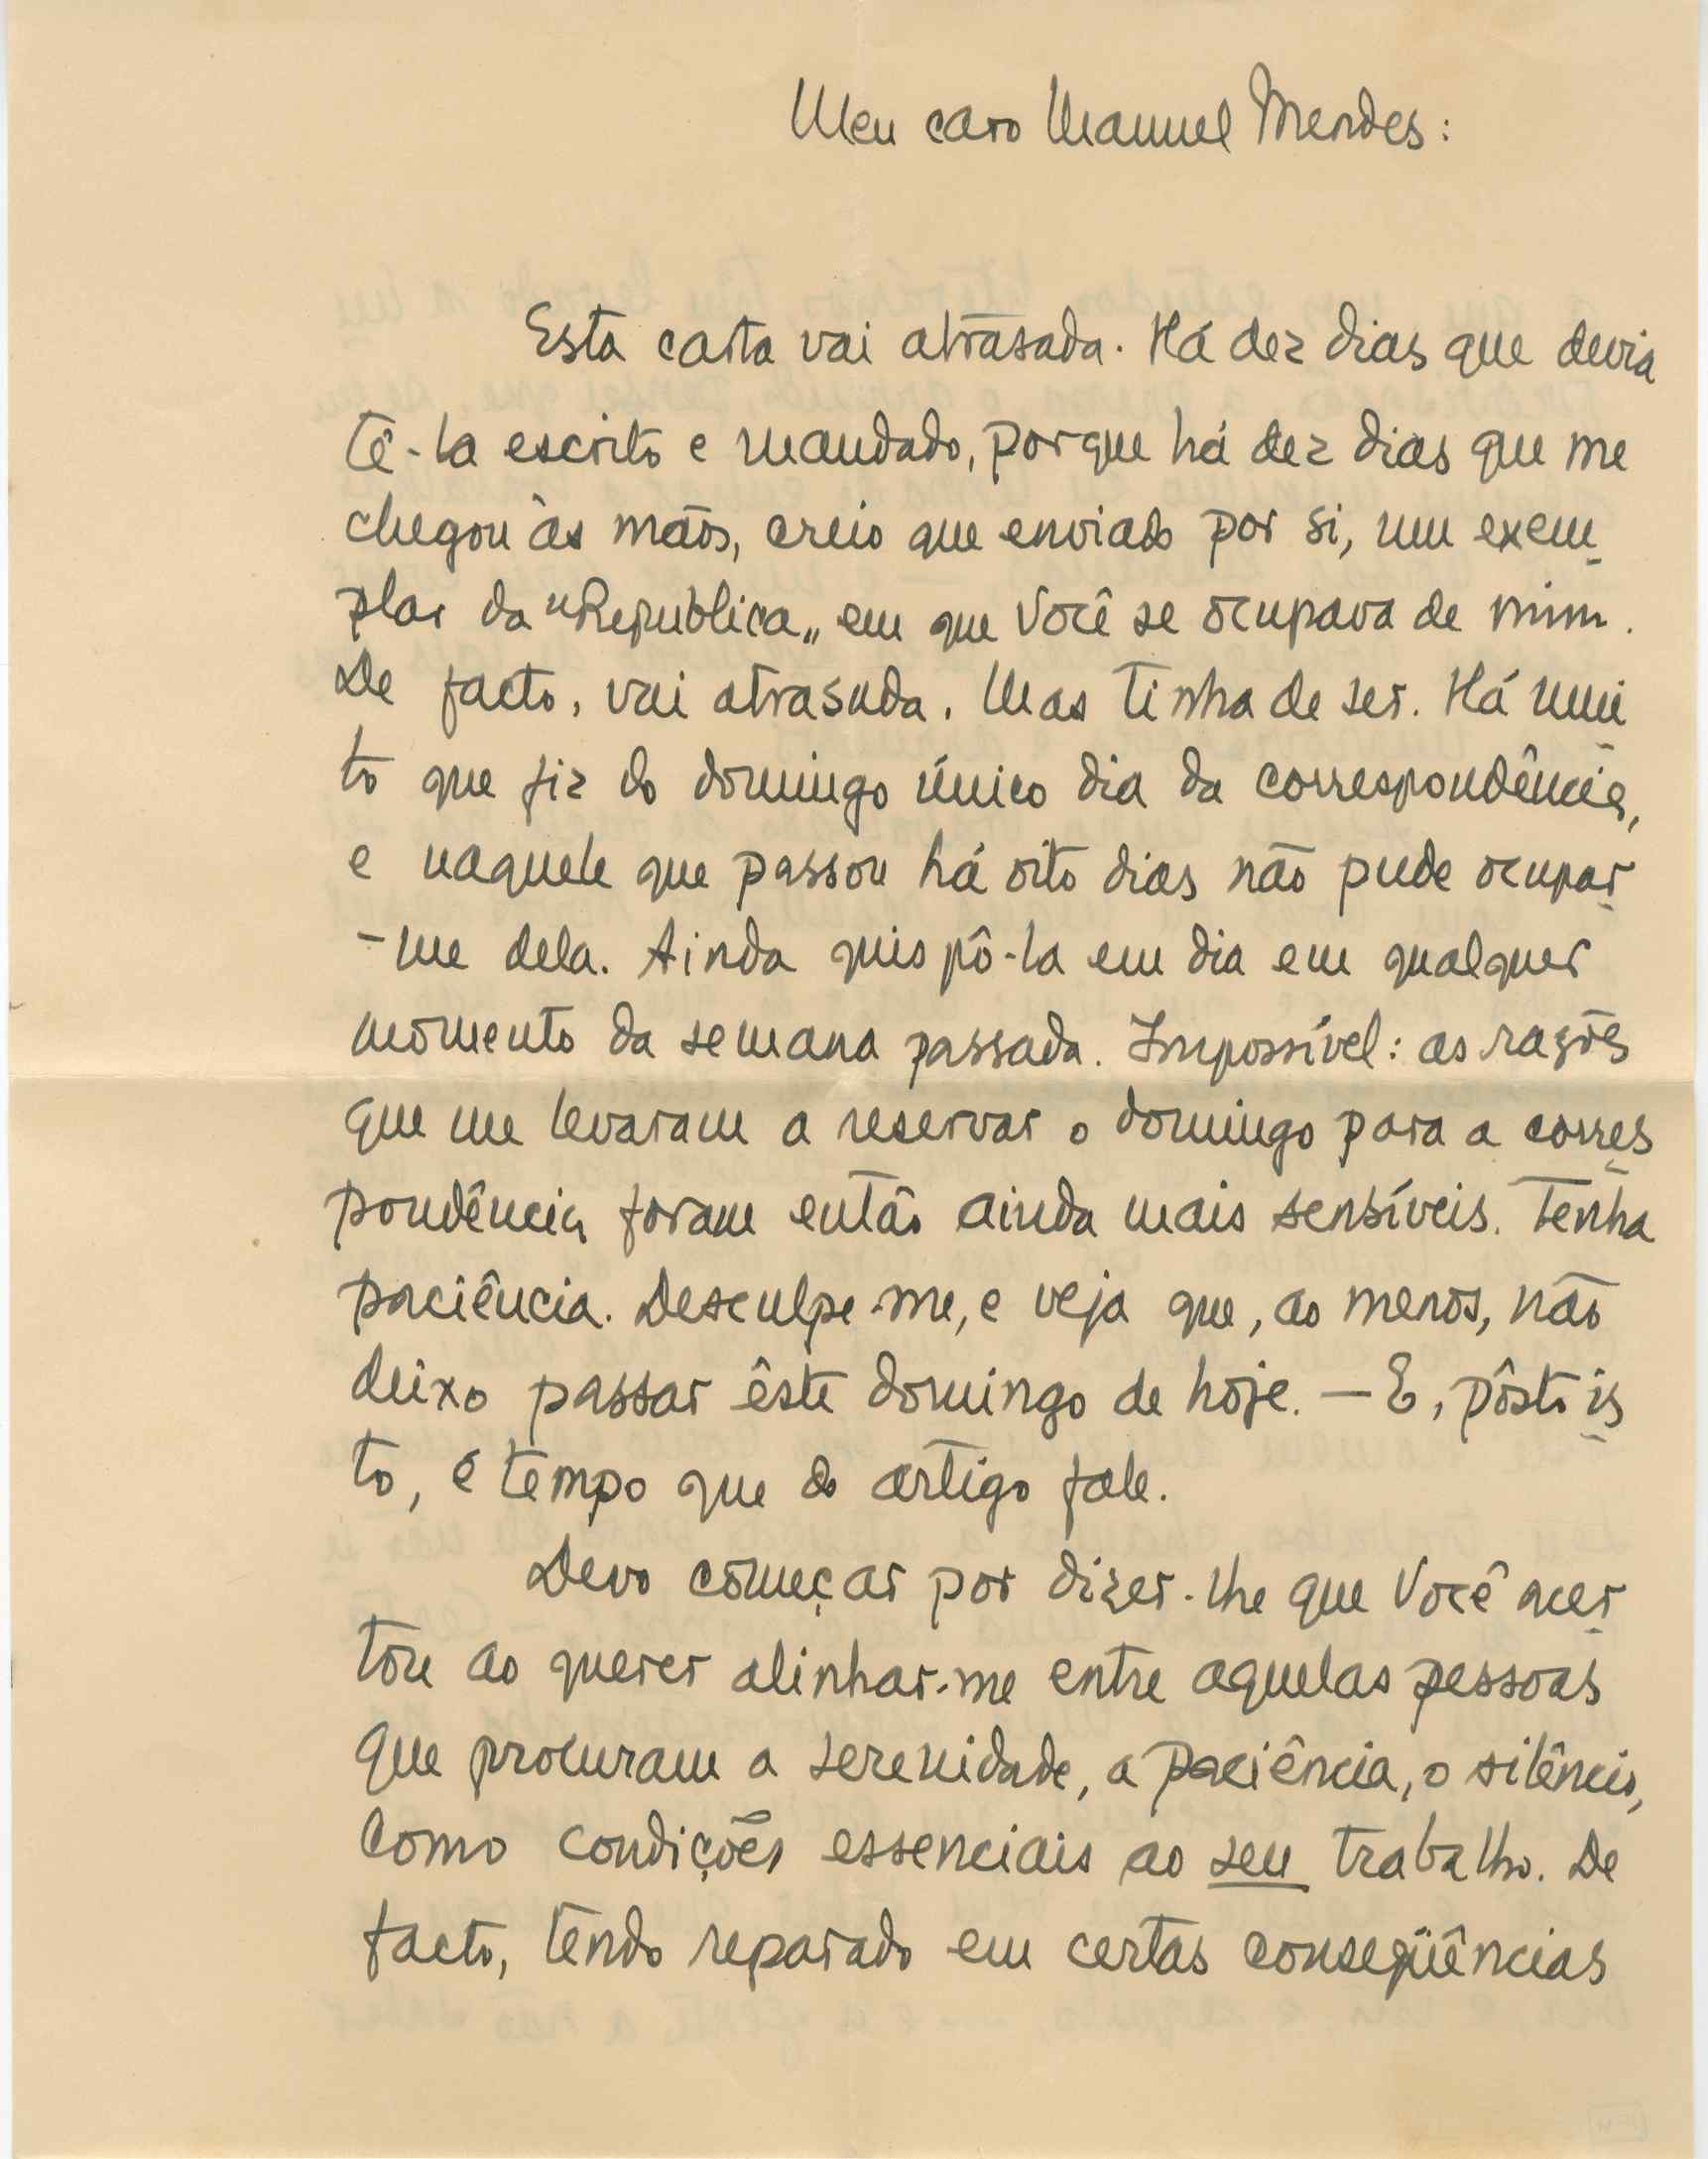 Meu caro Manuel Mendes:
Esta carta vai atrasada. Há dez dias que devia
tê-la escrito e mandado, porque há dez dias que me
chegou às mãos, creio que enviado por si, um exem-
plar da "Republica„ em que Você se ocupava de mim.
De facto, vai atrasada. Mas tinha de ser. Há mui-
to que fiz do domingo único dia da correspondência,
e naquele que passou há oito dias não pude ocupar-
-me dela. Ainda quis pô-la em dia em qualquer
momento da semana passada. Impossível: as razões
que me levaram a reservar o domingo para a corres-
pondência foram então ainda mais sensíveis. Tenha
paciência. Desculpe-me, e veja que, ao menos, não
deixo passar êste domingo de hoje. — E, pôsto is-
to, é tempo que do artigo fale.
Devo começar por dizer-lhe que Você acer-
tou ao querer alinhar-me entre aquelas pessoas
que procuram a serenidade, a paciência, o silêncio,
como condições essenciais ao seu trabalho. De
facto, tendo reparado em certas conseqüências